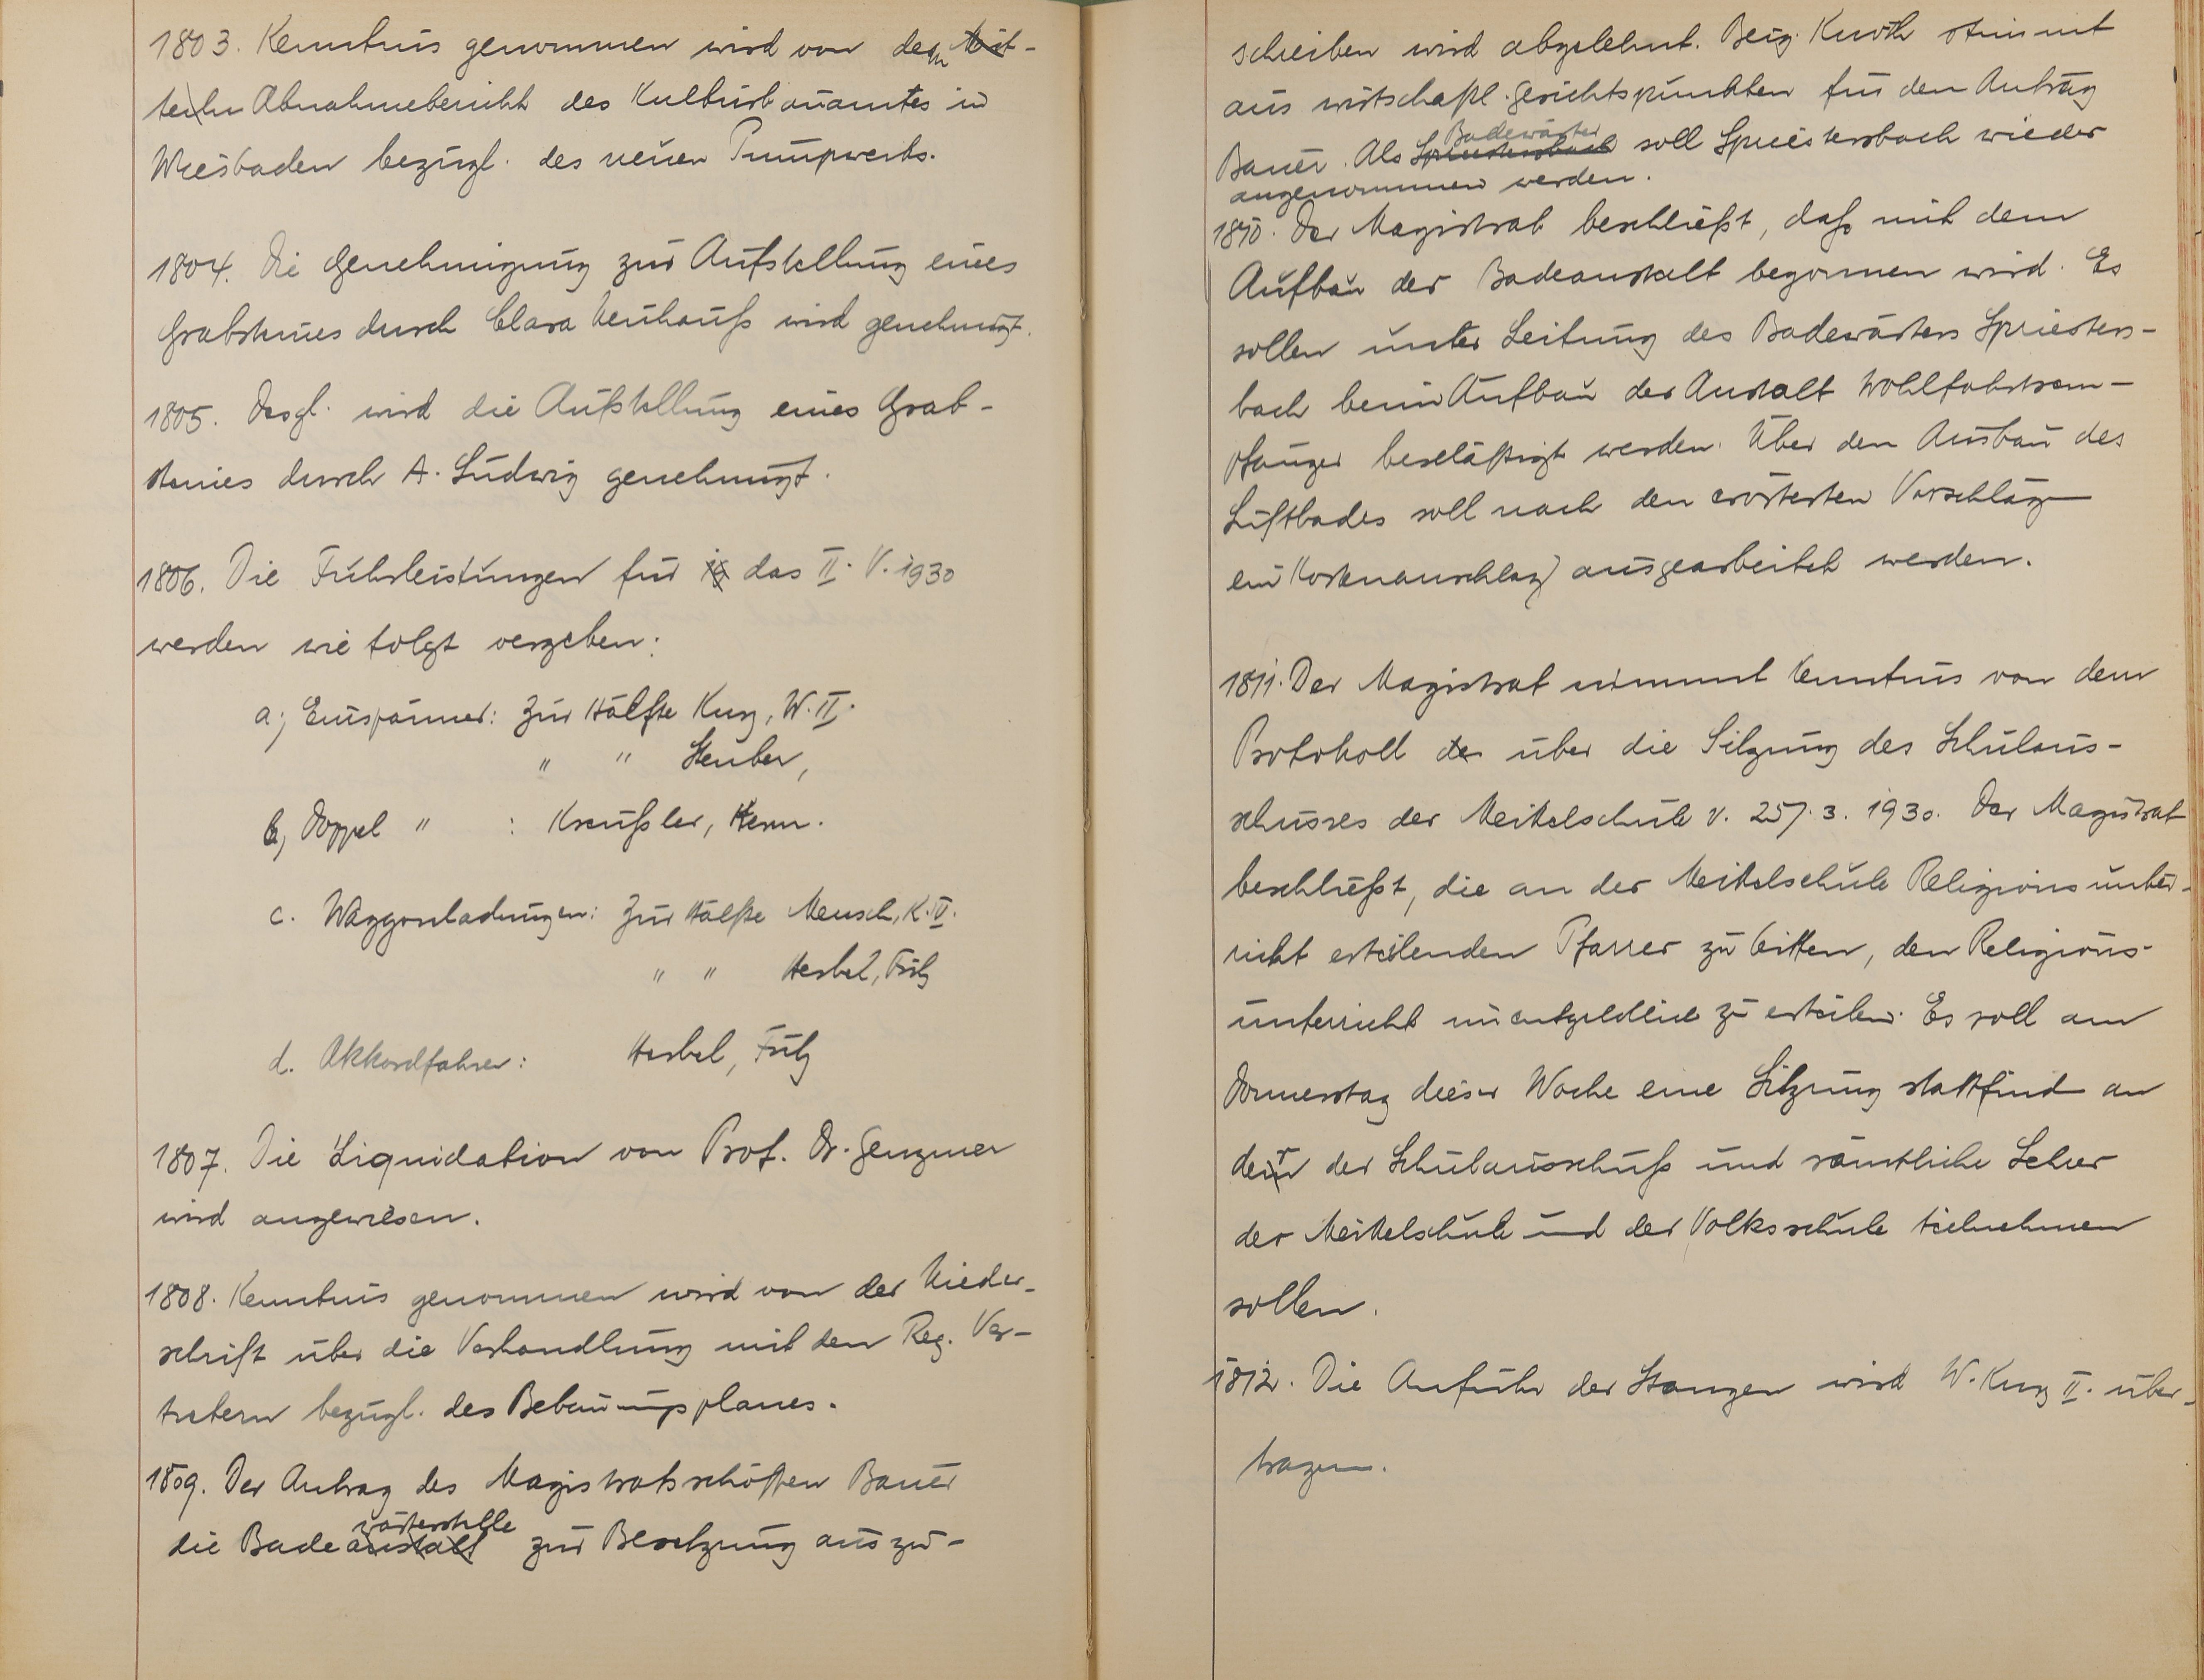 1803. Kenntnis genommen wird von dem Mit-
teiln Abnahmebericht des Kulturbauamtes in
Wiesbaden bezügl. des neuen Pumpwerks.
1804. Die Genehmigung zur Aufstellung eines
Grabsteines durch Clara Neuhauß wird genehmigt.
1805. Desgl. wird die Aufstellung eines Grab-
steines durch A. Ludwig genehmigt.
1806. Die Fuhrleistungen für das II. V. 1930
werden wie folgt vergeben:
a; Einspänner: Zur Hälfte Kurz, W. II.
" " Steuber,
b, Doppel " : Kreußler, Kern.
c. Waggonladungen: Zur Hälfte Mensch, K. IV.
" " Herbel, Fritz
d. Akkordfahrer: Herbel, Fritz
1807. Die Liquidation von Prof. Dr. Genzmer
wird angewiesen.
1808. Kenntnis genommen wird von der Nieder-
schrift über die Verhandlung mit den Reg. Ver-
tretern bezügl. des Bebauungsplanes.
1809. Der Antrag des Magistratsschöffen Bauer
wärterstelle
die Badeanstalt zur Besetzung auszu-
schreiben wird abgelehnt. Beig. Knoth stimmt
aus wirtschaftl. Gesichtspunkten für den Antrag
Badewärter
Bauer. Als Spriestersbach soll Spriestersbach wieder
angenommen werden.
1810. Der Magistrat beschließt, daß mit dem
Aufbau der Badeanstalt begonnen wird. Es
sollen unter Leitung des Badewärters Spriesters-
bach beim Aufbau der Anstalt Wohlfahrtsem-
pfänger beschäftigt werden. Über den Ausbau des
Luftbades soll nach den erörterten Vorschlägen
ein Kostenanschlag ausgearbeitet werden.
1811. Der Magistrat nimmt Kenntnis von dem
Protokoll der über die Sitzung des Schulaus-
schusses der Mittelschule v. 25. 3. 1930. Der Magistrat
beschließt, die an der Mittelschule Religionsunter-
richt erteilenden Pfarrer zu bitten, den Religions-
unterricht unentgeldlich zu erteilen. Es soll am
Donnerstag dieser Woche eine Sitzung stattfinden an
der der Schulausschuß und sämtliche Lehrer
der Mittelschule und der Volksschule teilnehmen
sollen.
1812. Die Anfuhr der Stangen wird W. Kurz II. über-
tragen.